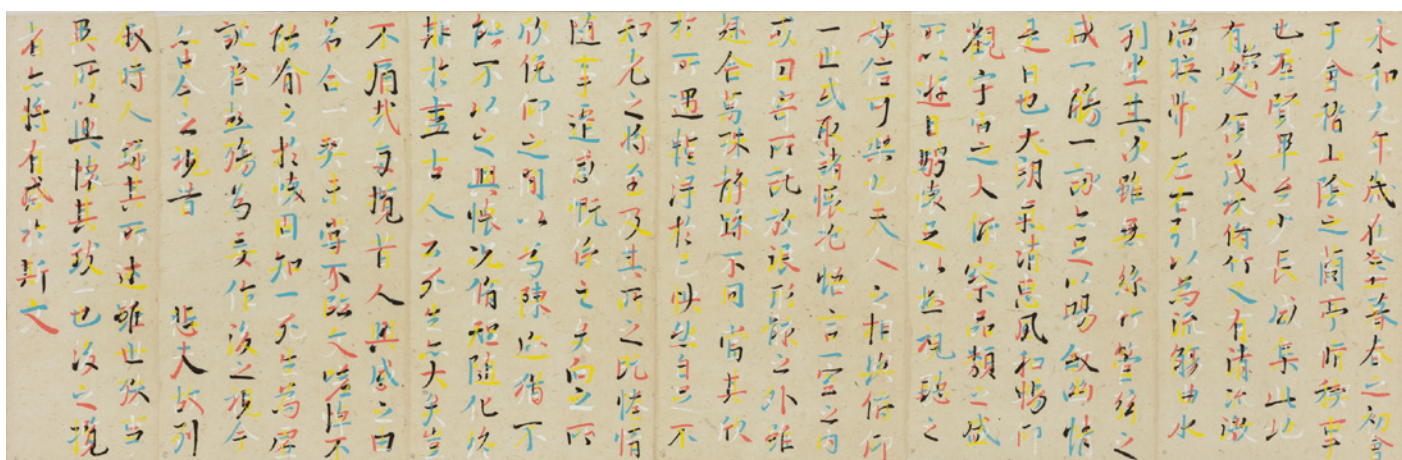 永和九年歲在癸丑暮春之初會
于會稽山陰之蘭亭脩稧事
也羣賢畢至少長咸集此地
有崇山峻領茂林脩竹又有清流激
湍暎帶左右引以為流觴曲水
列坐其次雖無絲竹管弦之
盛一觴一詠亦足以暢敘幽情
是日也天朗氣清惠風和暢仰
觀宇宙之大俯察品類之盛
所以遊目騁懷足以極視聽之
娛信可樂也夫人之相與俯仰
一世或取諸懷抱悟言一室之內
或因寄所託放浪形骸之外雖
趣舍萬殊靜躁不同當其欣
於所遇暫得於己怏然自足不
知老之將至及其所之既惓情
隨事遷感慨係之矣向之所
欣俛仰之間以為陳迹猶不
能不以之興懷況脩短隨化終
期於盡古人云死生亦大矣豈
不痛哉每攬昔人興感之由
若合一契未嘗不臨文嗟悼不
能喻之於懷固知一死生為虛
誕齊彭殤為妄作後之視今
亦由今之視昔 悲夫故列
敘時人錄其所述雖世殊事
異所以興懷其致一也後之攬
者亦將有感於斯文